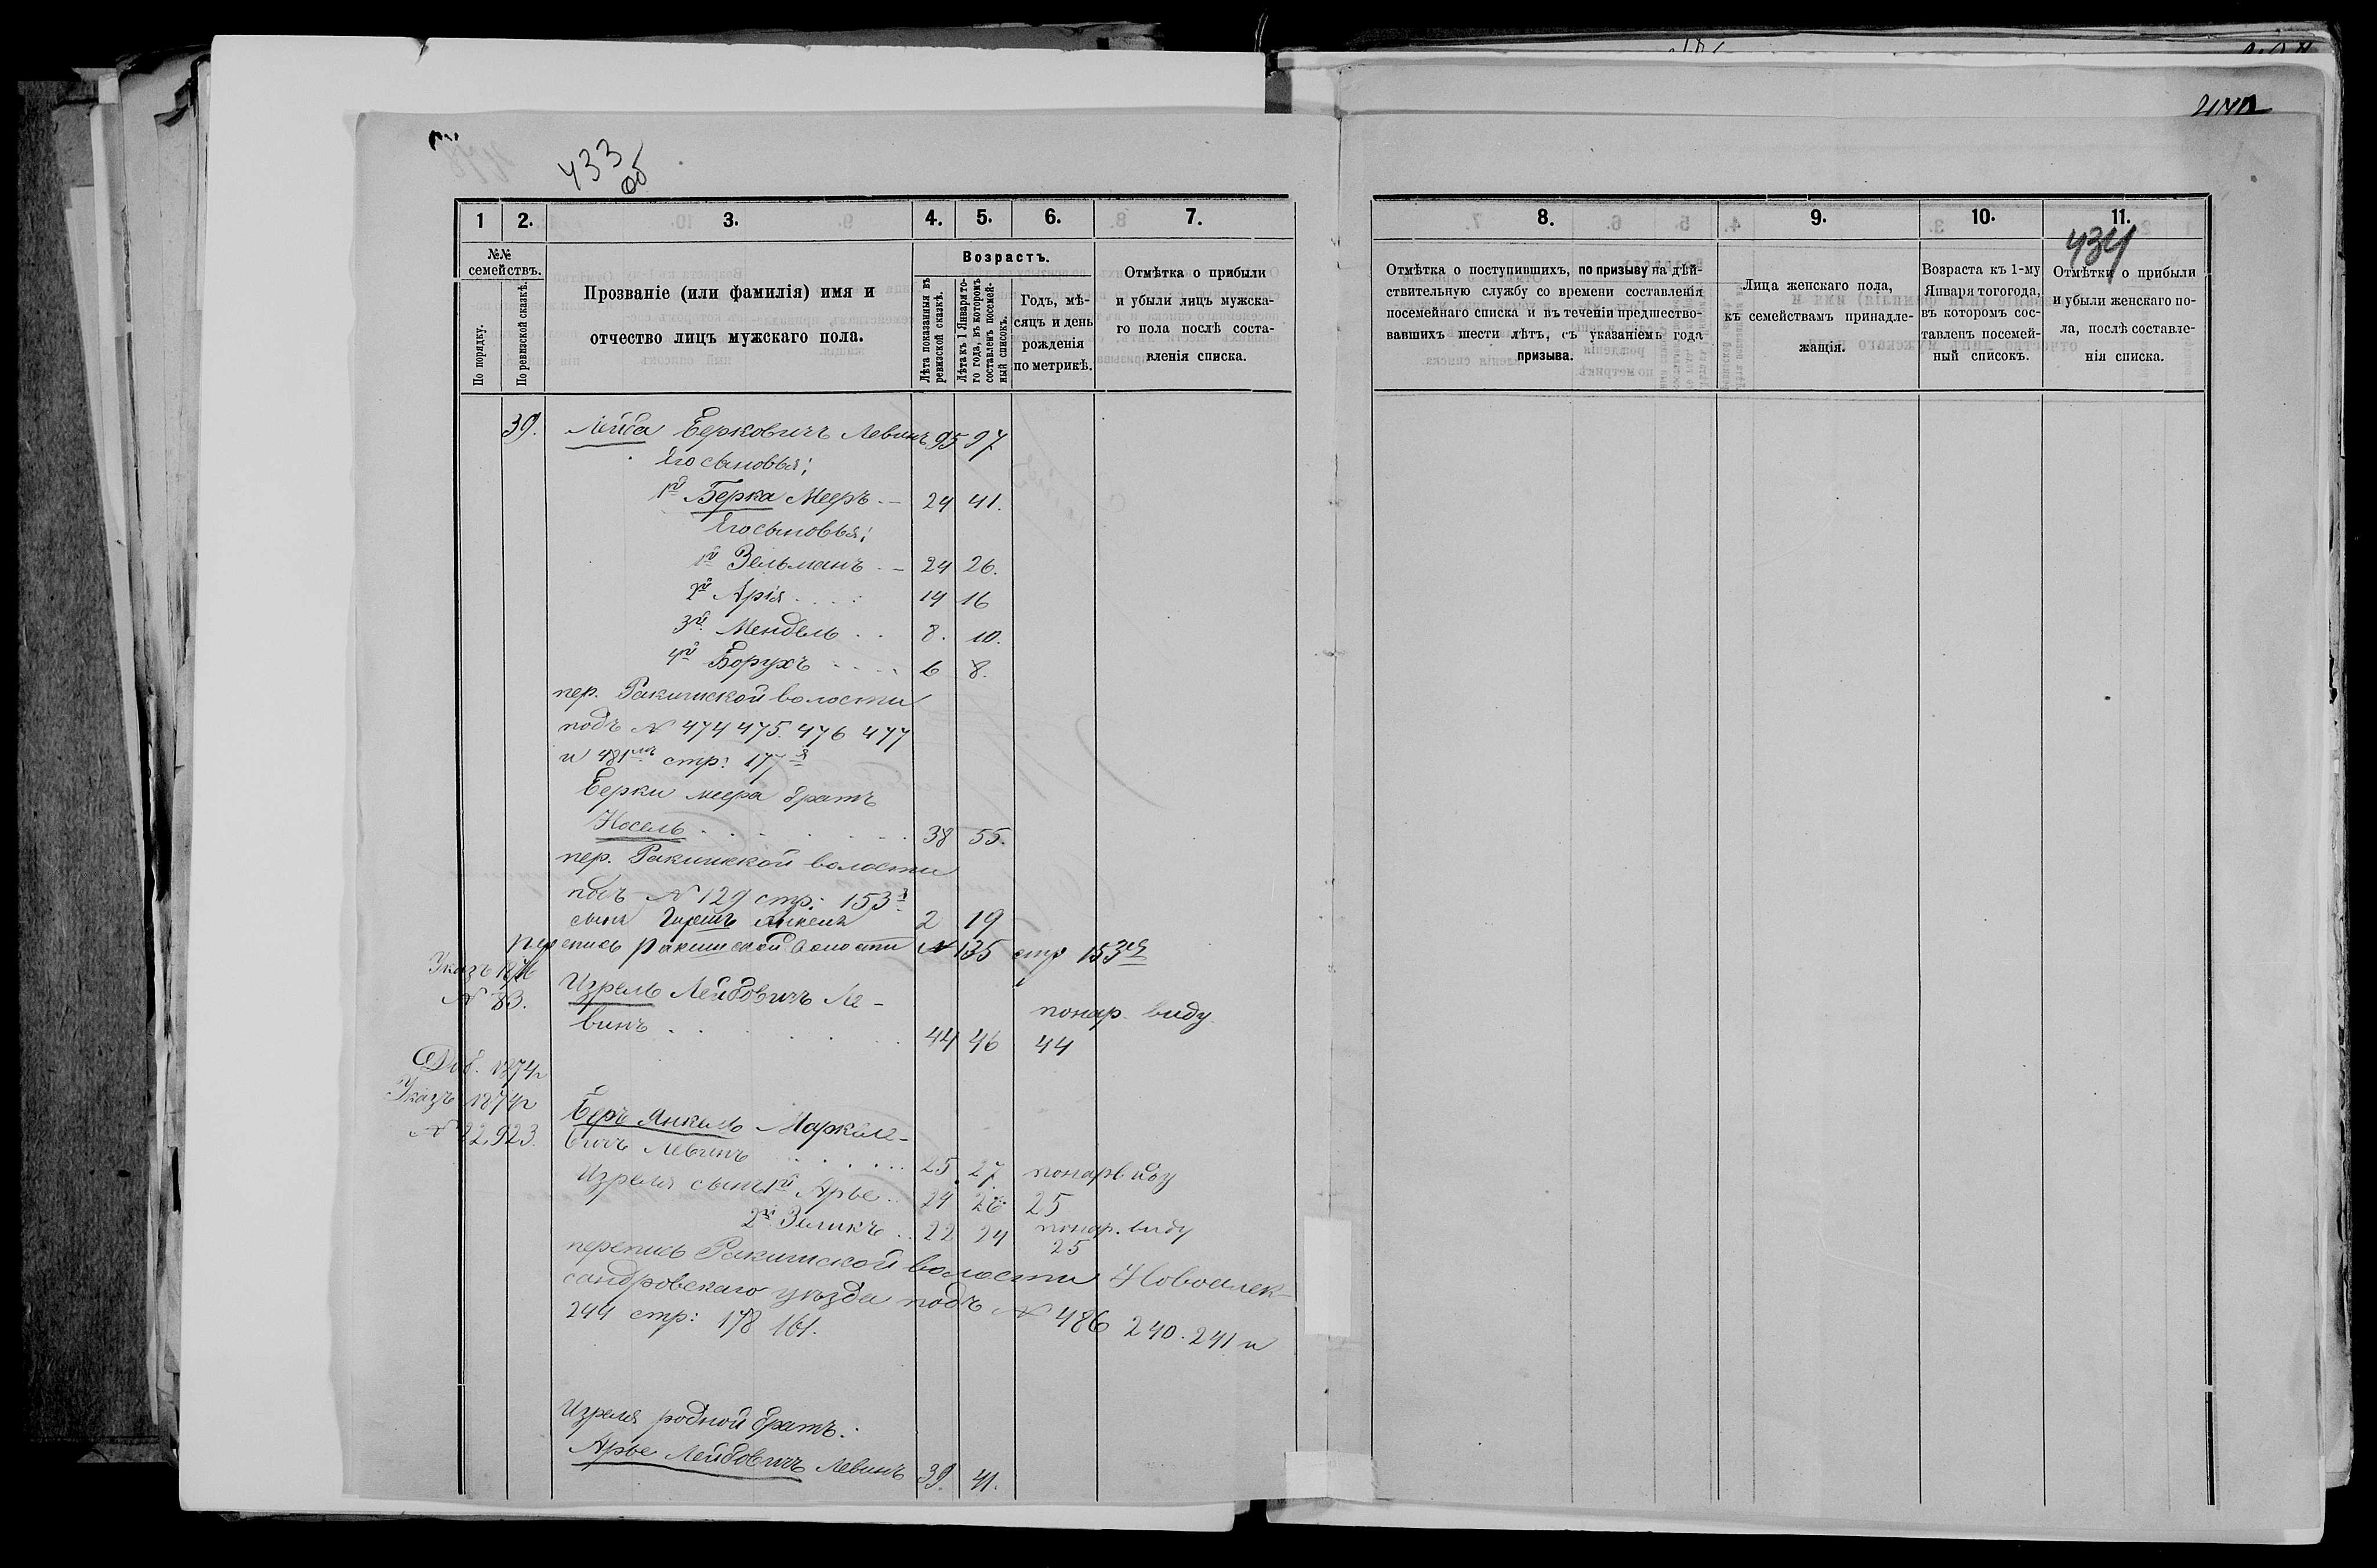 433
об
1 2. 3. 4. 5. 6. 7.
№№ семействъ.
По порядку.
По ревизской сказкѣ.
Прозваніе (или фамилія) имя и
отчество лицъ мужскаго пола.
Возрастъ.
Лѣта показанныя въ
ревизской сказкѣ.
Лѣта къ 1 Января то-
го года, въ которомъ
составленъ посемей-
ный списокъ.
Годъ, мѣ-
сяцъ и день
рожденія
по метрикѣ.
Отмѣтка о прибыли
и убыли лицъ мужска-
го пола послѣ соста-
вленія списка.
39. Лейба Берковичъ Левинъ 95 97
Его сыновья;
1й Берка Мееръ 24 41.
Его сыновья;
1й Зельманъ 24 26.
2й Арія 14 16
3й Мендель 8. 10.
4й Борухъ 6 8.
пер. Ракишской волости
подъ N 474 475. 476 477
и 481мъ стр: 177я
Берки меера братъ
Носель 38 55.
пер. Ракишской волости
подъ N 129 стр: 153я
сынъ Янкель 2 19
перепись Ракишской волости N 135 стр 153я
Указъ 1876
N 83.
Изрель Лейбовичъ Ле-
винъ 44 46
понар. виду.
44
Доб. 1874г
Указъ 1874г
N 22,923.
Беръ Янкель Маркеле-
вичъ Левинъ 25 27. понар виду
Изреля сынъ 1й Арье 24 26 25
2й Зеликъ 22 24 понар. виду
25
перепись Ракишской волости Новоалек-
сандровскаго уѣзда подъ N 486 240. 241 и
244 стр: 178 161.
Изреля родной братъ:
Арье Лейбовичъ Левинъ 39. 41.
8. 9. 10. 11.
434
Отмѣтка о поступившихъ, по призыву на дѣй-
ствительную службу со времени составленія
посемейнаго списка и въ теченіи предшество-
вавшихъ шести лѣтъ, съ указаніемъ года
призыва.
Лица женскаго пола,
къ семействамъ принадле-
жащія.
Возраста къ 1-му
Января того года,
въ которомъ сос-
тавленъ посемей-
ный списокъ.
Отмѣтки о прибыли
и убыли женскаго по-
ла, послѣ составле-
нія списка.